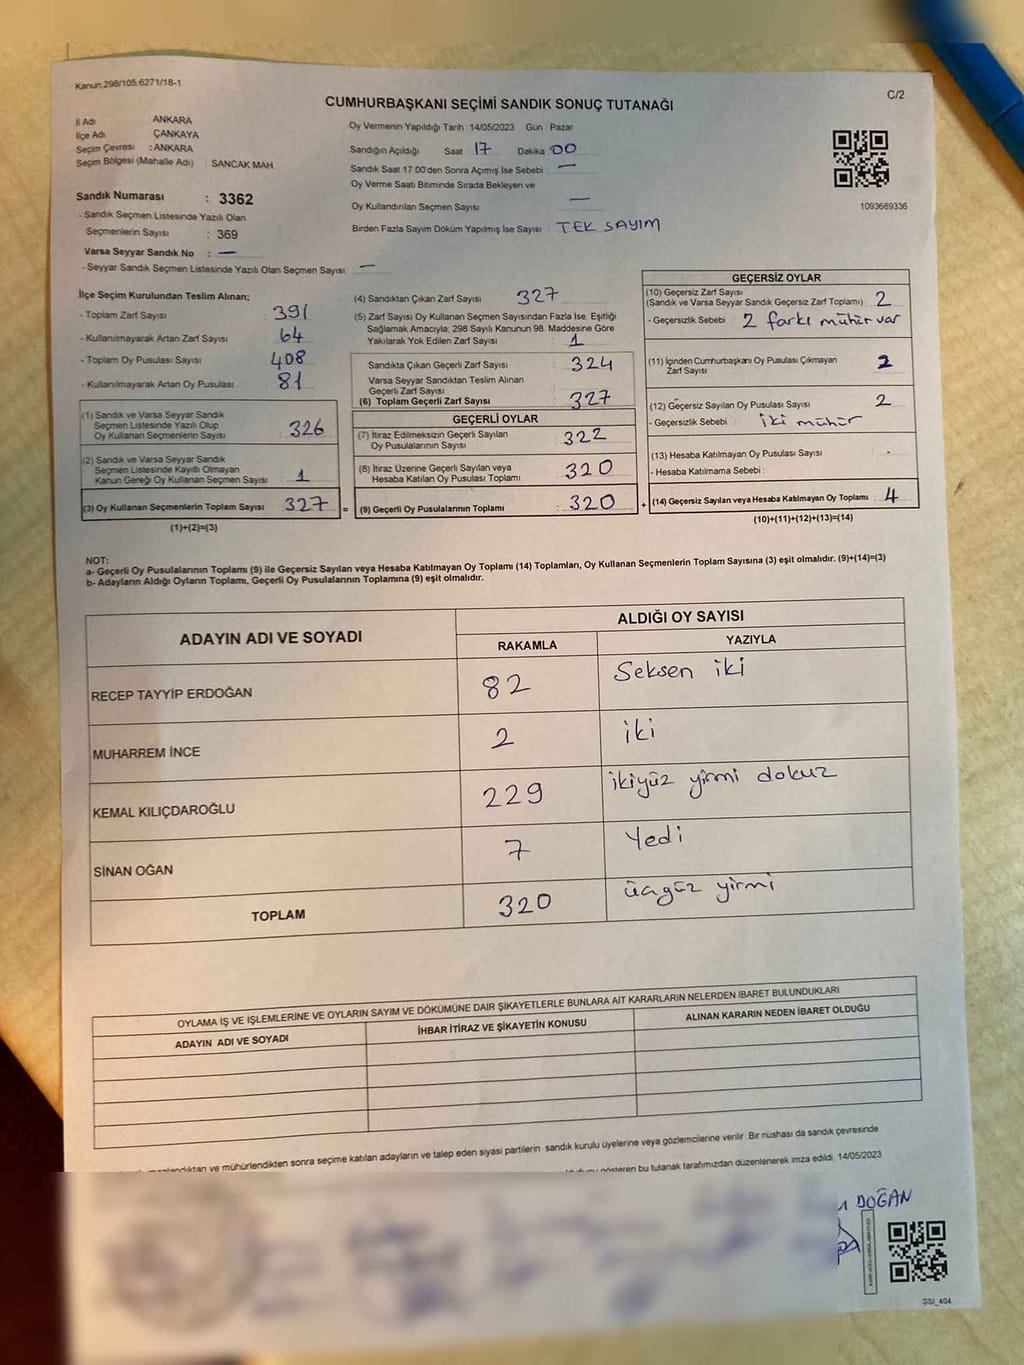 Kanun.298/105.6271/18-1
C/2
CUMHURBAŞKANI SEÇİMİ SANDIK SONUÇ TUTANAĞI
İl Adı : ANKARA
İlçe Adı : ÇANKAYA
Seçim Çevresi : ANKARA
Seçim Bölgesi (Mahalle Adı) : SANCAK MAH.
Sandık Numarası : 3362
- Sandık Seçmen Listesinde Yazılı Olan
Seçmenlerin Sayısı : 369
Varsa Seyyar Sandık No : —
- Seyyar Sandık Seçmen Listesinde Yazılı Olan Seçmen Sayısı: —
Oy Vermenin Yapıldığı Tarih 14/05/2023 Gün Pazar
Sandığın Açıldığı Saat 17 Dakika 00
Sandık Saat 17:00'den Sonra Açımış İse Sebebi : —
Oy Verme Saati Bitiminde Sırada Bekleyen ve
Oy Kullandırılan Seçmen Sayısı —
Birden Fazla Sayım Döküm Yapılmış İse Sayısı : TEK SAYIM
1093689336
İlçe Seçim Kurulundan Teslim Alınan;
- Toplam Zarf Sayısı : 391
- Kullanılmayarak Artan Zarf Sayısı : 64
- Toplam Oy Pusulası Sayısı : 408
- Kullanılmayarak Artan Oy Pusulası : 81
(1) Sandık ve Varsa Seyyar Sandık
Seçmen Listesinde Yazılı Olup
Oy Kullanan Seçmenlerin Sayısı : 326
(2) Sandık ve Varsa Seyyar Sandık
Seçmen Listesinde Kayıtlı Olmayan
Kanun Gereği Oy Kullanan Seçmen Sayısı : 1
(3) Oy Kullanan Seçmenlerin Toplam Sayısı : 327
(1)+(2)=(3)
(4) Sandıktan Çıkan Zarf Sayısı : 327
(5) Zarf Sayısı Oy Kullanan Seçmen Sayısından Fazla İse, Eşitliği
Sağlamak Amacıyla, 298 Sayılı Kanunun 98. Maddesine Göre
Yakılarak Yok Edilen Zarf Sayısı : 1
Sandıkta Çıkan Geçerli Zarf Sayısı : 324
Varsa Seyyar Sandıktan Teslim Alınan
Geçerli Zarf Sayısı
(6) Toplam Geçerli Zarf Sayısı : 327
GEÇERLİ OYLAR
(7) İtiraz Edilmeksizin Geçerli Sayılan
Oy Pusulalarının Sayısı : 322
(8) İtiraz Üzerine Geçerli Sayılan veya
Hesaba Katılan Oy Pusulası Toplamı : 320
= (9) Geçerli Oy Pusulalarının Toplamı : 320 +
GEÇERSİZ OYLAR
(10) Geçersiz Zarf Sayısı
(Sandık ve Varsa Seyyar Sandık Geçersiz Zarf Toplamı) : 2
- Geçersizlik Sebebi : 2 farkı mühür var
(11) İçinden Cumhurbaşkanı Oy Pusulası Çıkmayan
Zarf Sayısı : 2
(12) Geçersiz Sayılan Oy Pusulası Sayısı : 2
- Geçersizlik Sebebi : iki mühür
(13) Hesaba Katılmayan Oy Pusulası Sayısı :
- Hesaba Katılmama Sebebi :
(14) Geçersiz Sayılan veya Hesaba Katılmayan Oy Toplamı : 4
(10)+(11)+(12)+(13)=(14)
NOT:
a- Geçerli Oy Pusulalarının Toplamı (9) ile Geçersiz Sayılan veya Hesaba Katılmayan Oy Toplamı (14) Toplamları, Oy Kullanan Seçmenlerin Toplam Sayısına (3) eşit olmalıdır. (9)+(14)=(3)
b- Adayların Aldığı Oyların Toplamı, Geçerli Oy Pusulalarının Toplamına (9) eşit olmalıdır.
ADAYIN ADI VE SOYADI
ALDIĞI OY SAYISI
RAKAMLA YAZIYLA
RECEP TAYYİP ERDOĞAN 82 Seksen iki
MUHARREM İNCE 2 iki
KEMAL KILIÇDAROĞLU 229 ikiyüz yirmi dokuz
SİNAN OĞAN 7 Yedi
TOPLAM 320 üçyüz yirmi
OYLAMA İŞ VE İŞLEMLERİNE VE OYLARIN SAYIM VE DÖKÜMÜNE DAİR ŞİKAYETLERLE BUNLARA AİT KARARLARIN NELERDEN İBARET BULUNDUKLARI
ADAYIN ADI VE SOYADI İHBAR İTİRAZ VE ŞİKAYETİN KONUSU ALINAN KARARIN NEDEN İBARET OLDUĞU
ve mühürlendikten sonra seçime katılan adayların ve talep eden siyasi partilerin sandık kurulu üyelerine veya gözlemcilerine verilir. Bir nüshası da sandık çevresinde
gösteren bu tutanak tarafımızdan düzenlenerek imza edildi. 14/05/2023
DOĞAN
SSI_404